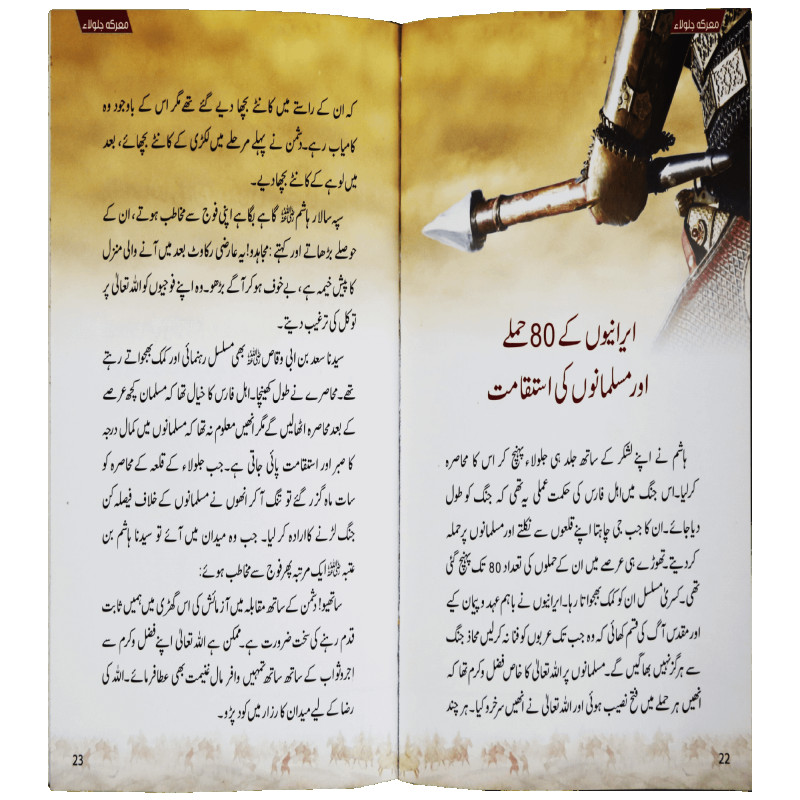 معرکہ جلولاء
ایرانیوں کے 80 حملے
اور مسلمانوں کی استقامت
ہاشم نے اپنے لشکر کے ساتھ جلد ہی جلولاء پہنچ کر اس کا محاصرہ
کرلیا۔اس جنگ میں اہل فارس کی حکمت عملی یہ تھی کہ جنگ کو طول
دیا جائے۔ان کا جب جی چاہتا اپنے قلعوں سے نکلتے اور مسلمانوں پر حملہ
کردیتے۔تھوڑے ہی عرصے میں ان کے حملوں کی تعداد 80 تک پہنچ گئی
تھی۔کسریٰ مسلسل ان کو کمک بھجواتا رہا۔ایرانیوں نے باہم عہد و پیمان کیے
اور مقدس آگ کی قسم کھائی کہ وہ جب تک عربوں کو فنا نہ کرلیں محاذ جنگ
سے ہرگز نہیں بھاگیں گے۔ مسلمانوں پر اللہ تعالیٰ کا خاص فضل و کرم تھا کہ
انھیں ہر حملے میں فتح نصیب ہوئی اور اللہ تعالیٰ نے انھیں سرخرو کیا۔ ہر چند
22
معرکہ جلولاء
کہ ان کے راستے میں کانٹے بچھا دیے گئے تھے مگر اس کے باوجود وہ
کامیاب رہے۔دشمن نے پہلے مرحلے میں لکڑی کے کانٹے بچھائے، بعد
میں لوہے کے کانٹے بچھا دیے۔
سپہ سالار ہاشم ﷺ گاہے بگاہے اپنی فوج سے مخاطب ہوتے، ان کے
حوصلے بڑھاتے اور کہتے: مجاہدو! یہ عارضی رکاوٹ بعد میں آنے والی منزل
کا پیش خیمہ ہے، بے خوف ہو کر آگے بڑھو۔ وہ اپنے فوجیوں کو اللہ تعالیٰ پر
توکل کی ترغیب دیتے۔
سیدنا سعد بن ابی وقاص ﷺ بھی مسلسل رہنمائی اور کمک بھجواتے رہتے
تھے۔ محاصرے نے طول کھینچا۔ اہل فارس کا خیال تھا کہ مسلمان کچھ عرصے
کے بعد محاصرہ اٹھالیں گے مگر انھیں معلوم نہ تھا کہ مسلمانوں میں کمال درجہ
کا صبر اور استقامت پائی جاتی ہے۔ جب جلولاء کے قلعہ کے محاصرہ کو
سات ماہ گزر گئے تو تنگ آکر انھوں نے مسلمانوں کے خلاف فیصلہ کن
جنگ لڑنے کا ارادہ کرلیا۔ جب وہ میدان میں آئے تو سیدنا ہاشم بن
عتبہ ﷺ ایک مرتبہ پھر فوج سے مخاطب ہوئے:
ساتھیو! دشمن کے ساتھ مقابلہ میں آزمائش کی اس گھڑی میں ہمیں ثابت
قدم رہنے کی سخت ضرورت ہے۔ ممکن ہے اللہ تعالیٰ اپنے فضل و کرم سے
اجر و ثواب کے ساتھ ساتھ تمہیں وافر مال غنیمت بھی عطا فرمائے۔ اللہ کی
رضا کے لیے میدان کارزار میں کود پڑو۔
23